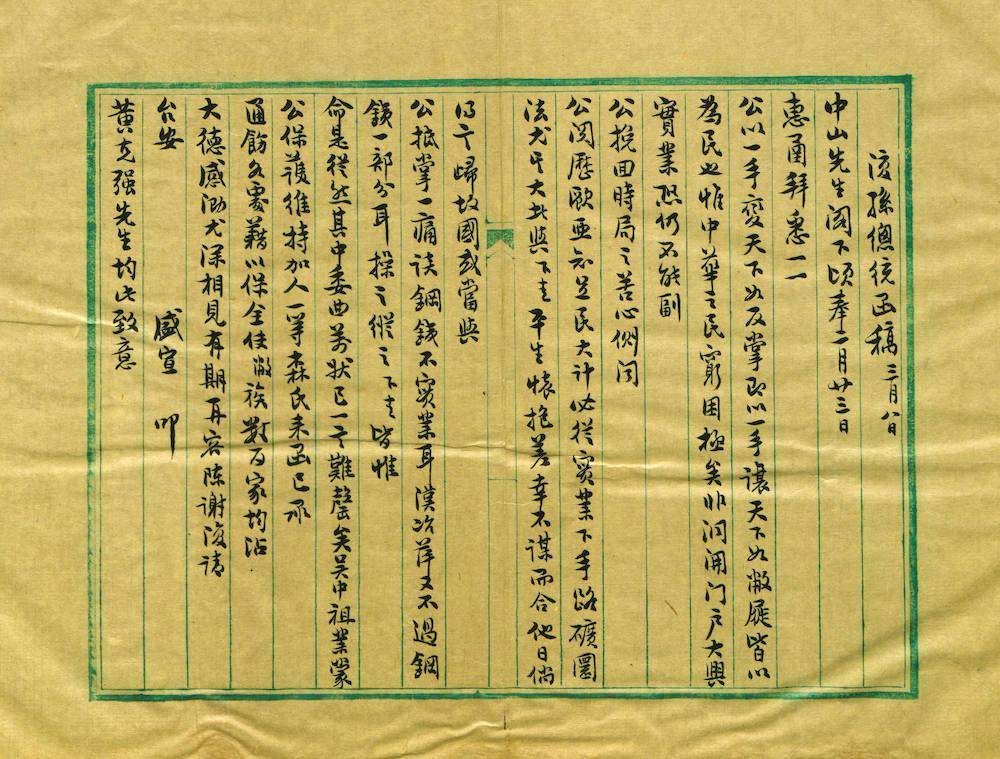 復孫總統函稿 三月八日
中山先生閣下頃奉二月廿三日
惠函拜悉一一
公以一手變天下如反掌即以一手讓天下如敝屣皆以
為民也惟中華之民窮困極矣非洞開門戶大興
實業恐仍不能副
公挽回時局之苦心側聞
公閱歷歐亞知足民大計必從實業下手路礦圜
法尤其大此與下走平生懷抱差幸不謀而合他日倘
得言歸故國或當與
公抵掌一痛談鋼鐵不實業耳漢冶萍又不過鋼
鐵一部分耳操之縱之下走皆惟
命是從然其中委曲萬狀已一言難罄矣吳中祖業蒙
公保護維持加人一等森氏來函已承
通飭各處藉以保全使敝族數百家均沾
大德感泐尤深相見有期再容陳謝復請
台安 盛宣 叩
黃克强先生均此致意